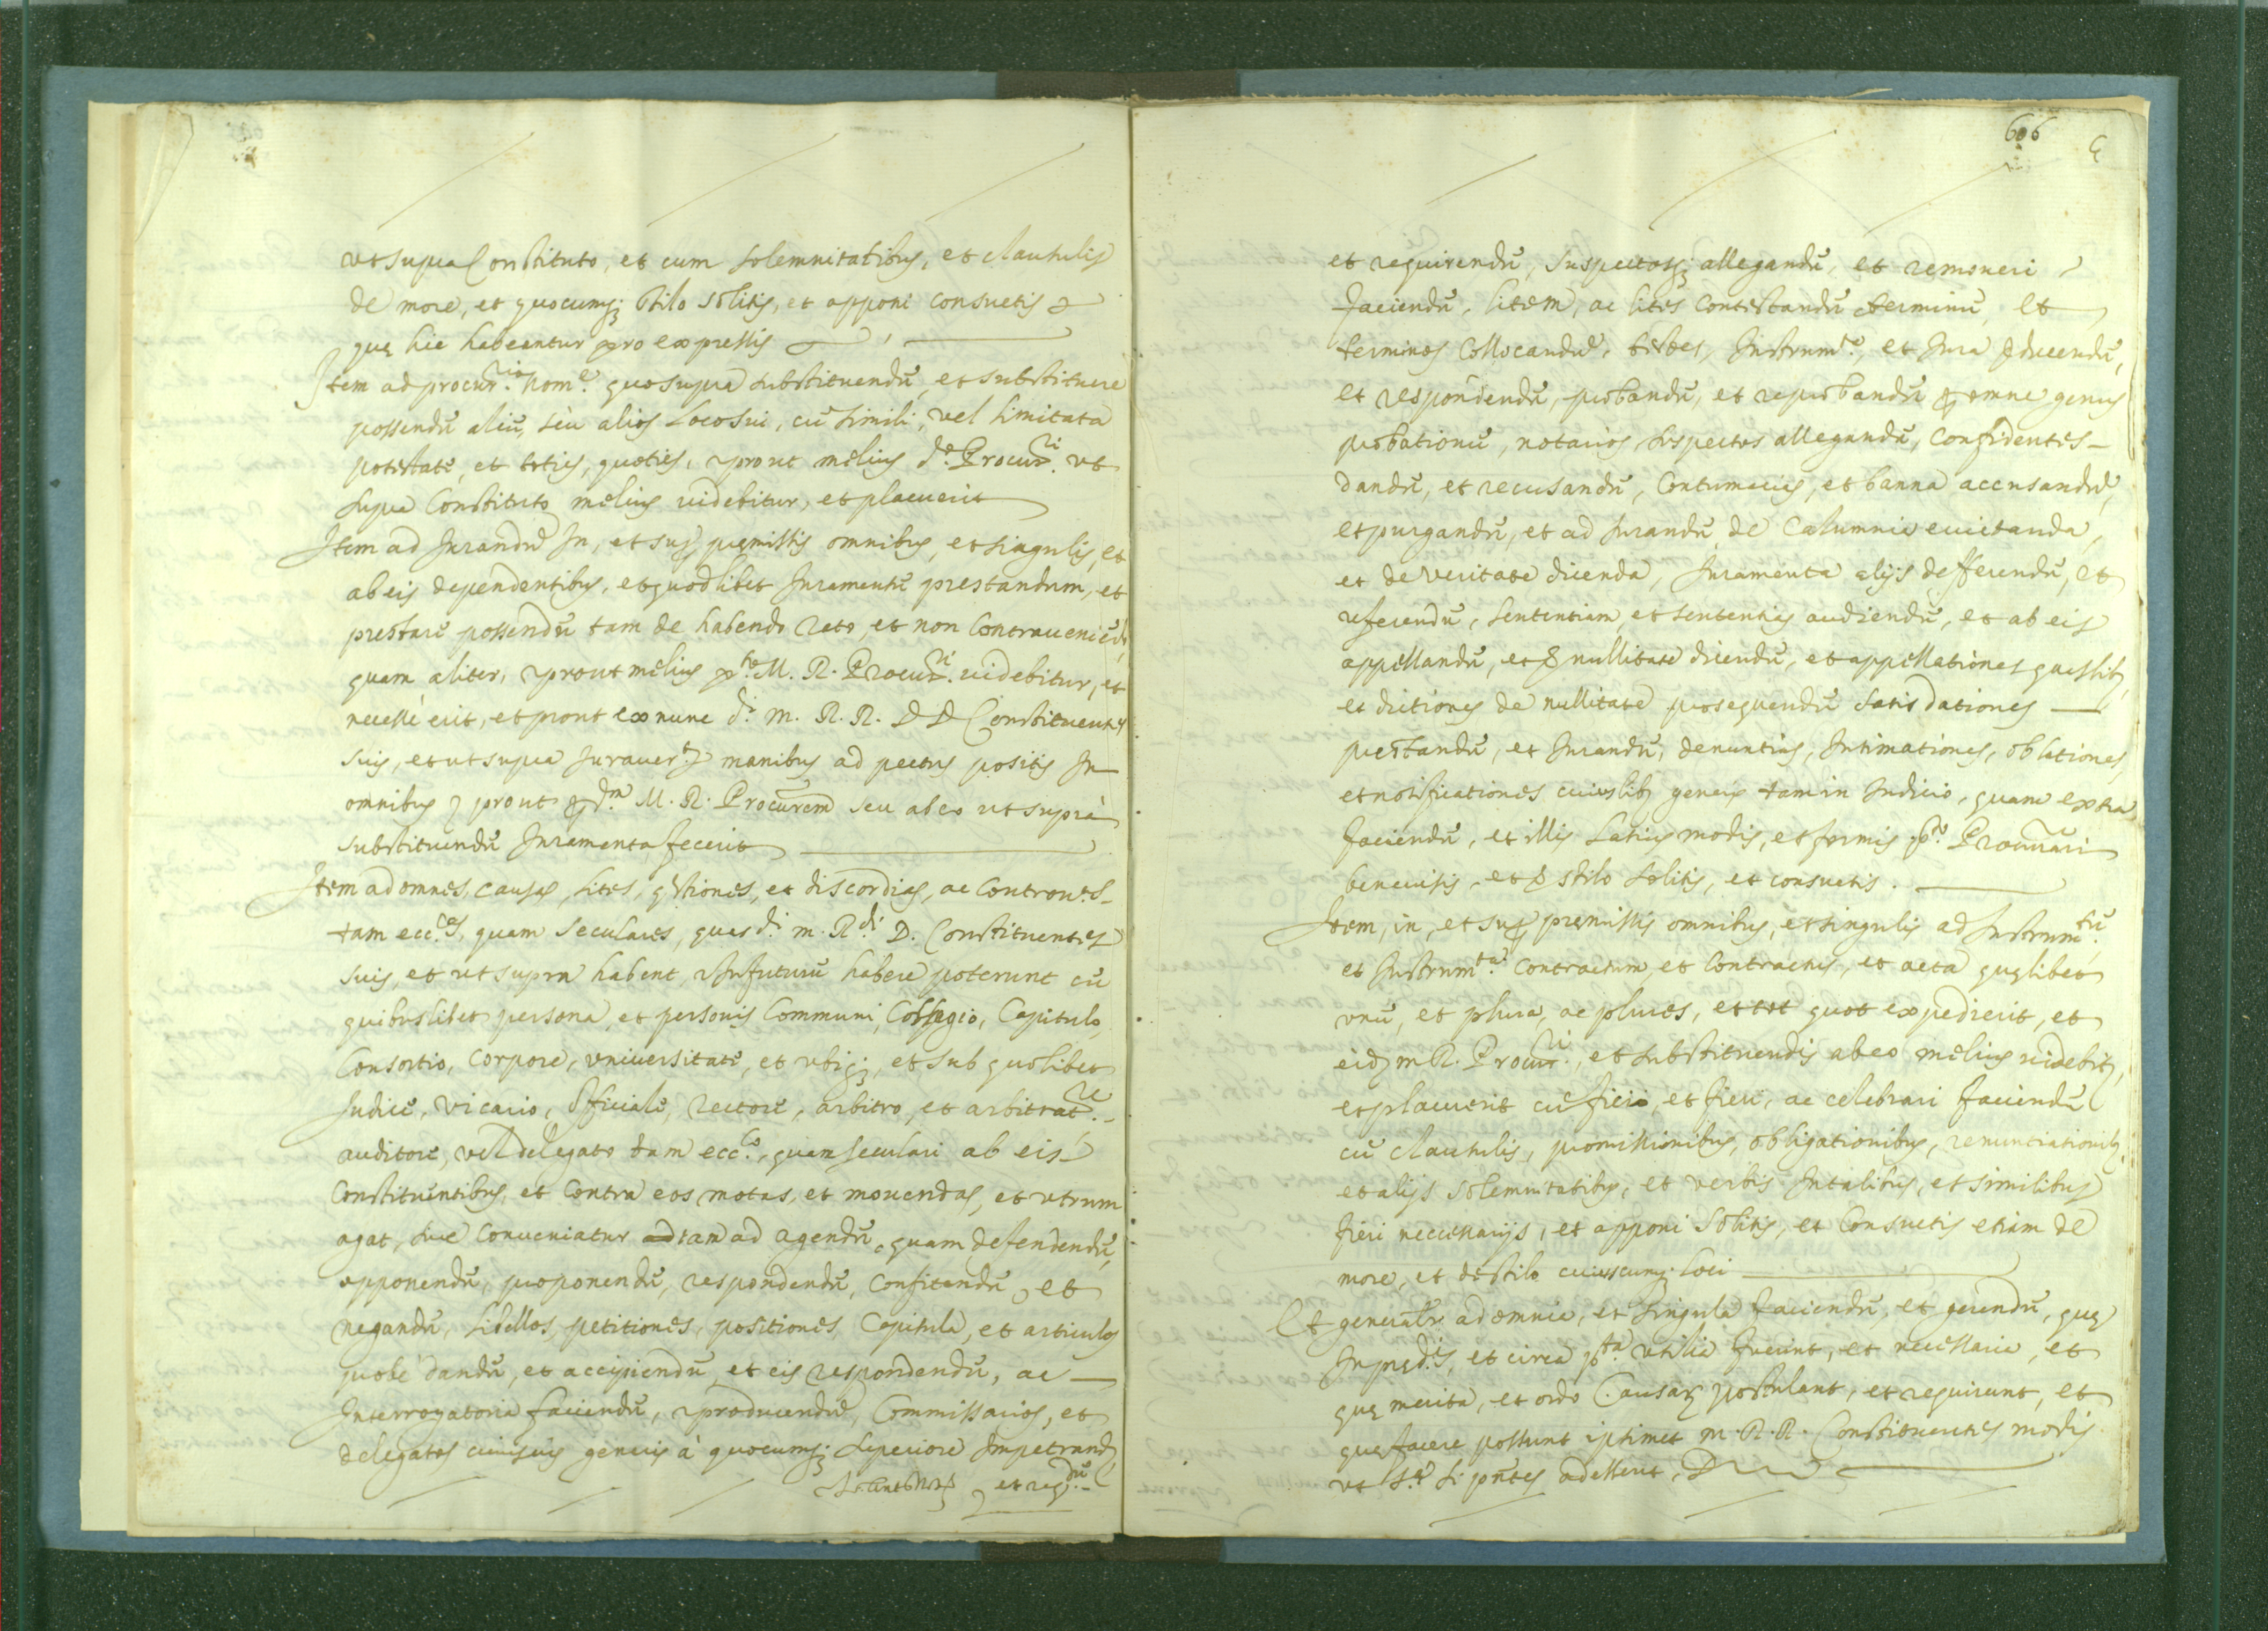 vt supra Constituto, et cum solemnitatibus, et clausulis
de more, et quocumq; stilo solitis, et apponi consuetis
quę hic habeantur pro expressis
Item ad procur.rio nom.e quo supra substituendū, et substituere
possendū aliū, seù alios loco sui, cū simili, vel limitata
potestate, et toties, quoties, prout melius d.o Procur.ri vt
supra Constituto melius uidebitur, et placuerit
Item ad Jurandū In, et sup pręmissis omnibus, et singulis, et
ab eis dependentibus, et quodlibet Juramentū prestandum, et
prestare possendū tam de habendo rato, et non Contraueniēdo
quam aliter, prout melius p.to M. R. Procur.ri uidebitur, et
necesse erit, et prout ex nunc d.i m. R. R. D D Constituentes
suis, et ut supra Jurauer.t manibus ad pectus positis In
omnibus prout p d.m M. R. Procurem seu ab eo ut suprà
substituendū Juramenta fecerit
Item ad omnes, causas, lites, qstiones, et discordias, ac Controu.s
tam ecc.cas, quam seculares, quas d.i m. R.di D. Constituentes
suis, et ut supra habent, Infuturū habere poterunt cū
quibuslibet persona, et personis Communi, Collegio, Capitulo,
Consortio, Corpore, vniuersitate, et vbiq;, et sub quolibet
Judice, vicario, Officiale, rectore, arbitro, et arbitrat.re
auditore, vel delegato tam ecc.co, quam seculari ab eis
Constituentibus, et Contra eos motas, et mouendas, et vtrum
agat, siue Conueniatur ad tam ad agendū, quam defendendū,
opponendū, proponendū, respondendū, Confitendū, et
negandū, libellos, petitiones, positiones Capitula, et articulos
probè dandū, et accipiendū, et eis respondendū, ac
Interrogatoria faciendū, producendū, Commissarios, et
delegatos cuiusuis generis à quocumq; superiore Impetrand
et req.dū
606
et requirendū, suspectosq; allegandū, et remoueri
faciendū, litem, ac lites Contestandū terminū, et
terminos Collocandū, testes, Instrum.ta, et Jura pducendū,
et respondendū, probandū, et reprobandū p omne genus
probationū, notarios suspectos allegandū, Confidentes
dandū, et recusandū, Contumacias, et banna accusandū,
et purgandū, et ad Jurandū de Calumnia euitanda,
et de veritate dicenda, Juramenta alijs defferendū, et
referendū, sententiam et sententias audiendū, et ab eis
appellandū, et d nullitate dicendū, et appellationes quaslibs,
et dictiones de nullitate prosequendū satis dationes
prestandū, et Jurandū, denuntias, Intimationes, oblationes,
et notificationes cuiuslibs generis tam in Judicio, quam extra
faciendū, et illis latius modis, et formis p.to Procurari
beneuisis, et d stilo solitis, et consuetis.
Item, in, et sup pręmissis omnibus, et singulis ad Instrum.tū
et Instrum.ta Contractum et Contractus, et acta quęlibet
vnū, et plura, ac plures, et tot quot expedierit, et
eid m R. Procur.ri, et substituendis ab eo melius uidebit,
et placuerit cū fieri, et fieri, ac celebrari faciendū
cū clausulis, promissionibus, obligationibus, renunciationibs,
et alijs solemnitatibus, et verbis Intalibus, et similibus
fieri necessarijs, et apponi solitis, et Consuetis etiam de
more, et d stilo cuiuscumq; loci
Et generalr ad omnia, et singula faciendū, et gerendū, quę
In pręd.is, et circa p.ta vtilia fuerint, et necessaria, et
quę merita, et ordo Causar postulant, et requirunt, et
quę facere possunt ipsimet m. R. R. Constituentes modis
vt s.a si pntes adessent,